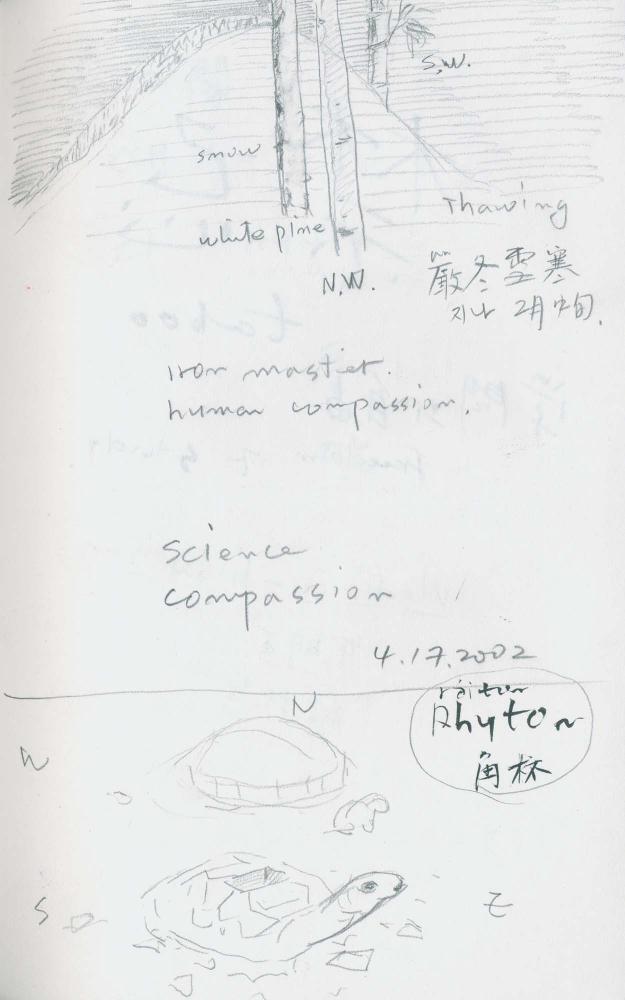 S.W.
snow
Thawing
white pine
N.W.
嚴冬雪寒
지나 2月 中旬.
iron
human compassion.
science
compassion
4.17.2002
Rhyton
角杯
N
W
S
E